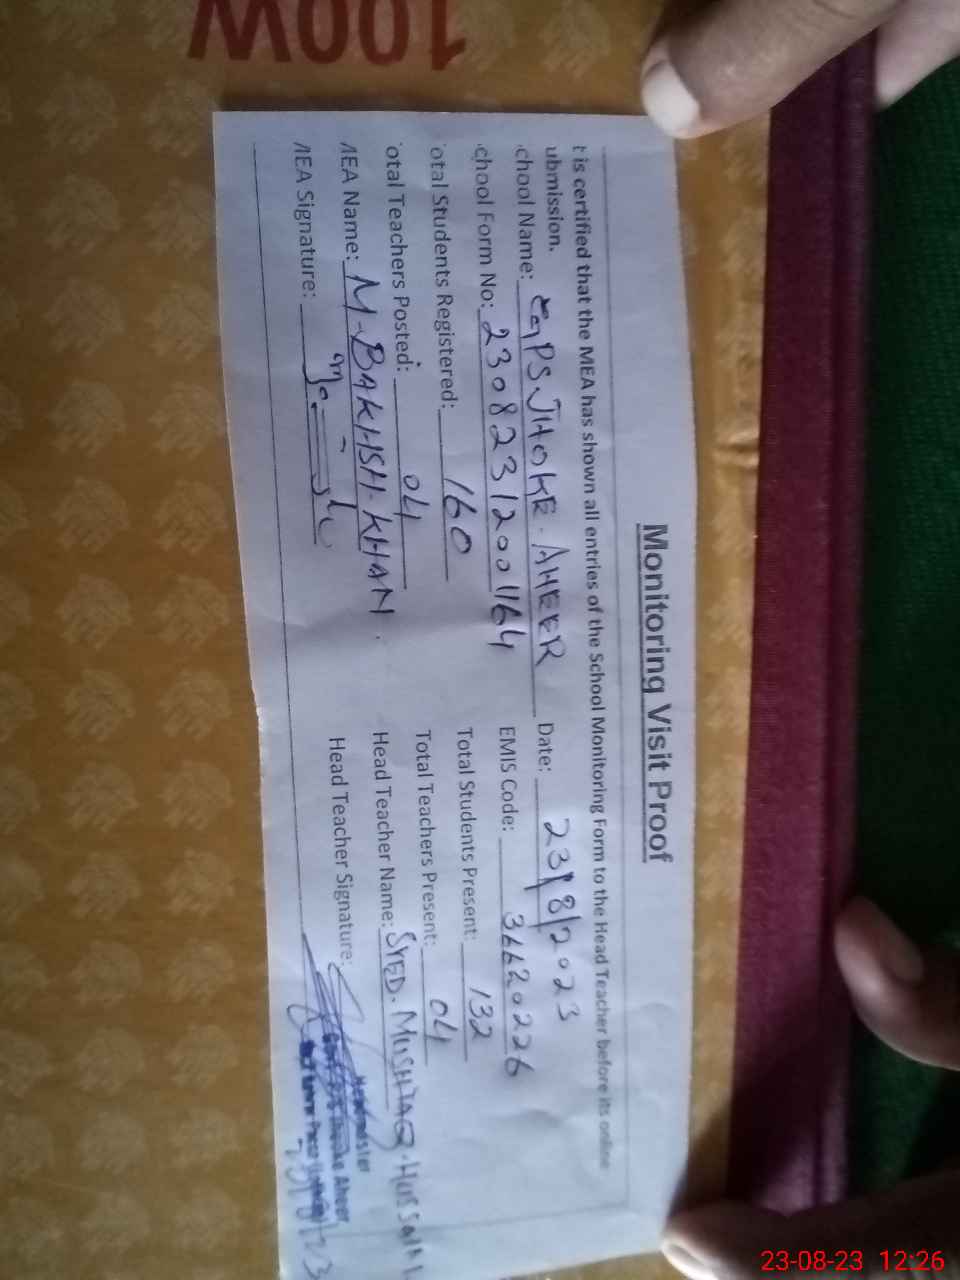 100W
Monitoring Visit Proof
t is certified that the MEA has shown all entries of the School Monitoring Form to the Head Teacher before its online
ubmission.
chool Name: GGPS JHOKE AHEER Date: 23/8/2023
chool Form No: 23082312001164 EMIS Code: 36620226
otal Students Registered: 160 Total Students Present: 132
otal Teachers Posted: 04 Total Teachers Present: 04
MEA Name: M. BAKHSH. KHAN. Head Teacher Name: SYED. MUSHTAQ. HUSSAIN
MEA Signature: Head Teacher Signature:
Headmaster
Aheer
23/8/23
23-08-23 12:26